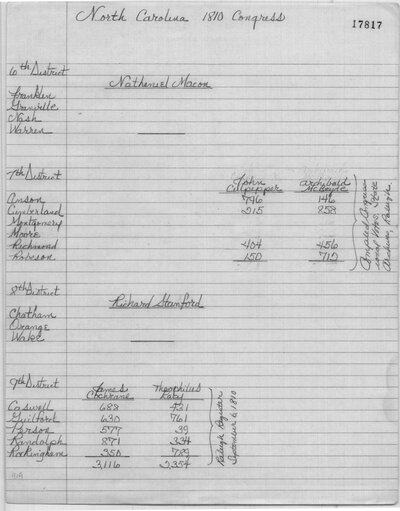 North Carolina 1810 Congress
17817
6th District
Nathaniel Macon
Franklin
Granville
Nash
Warren
7th District
John Culpepper
Archibald McBryde
Anson 796 146
Cumberland 215 858
Montgomery
Moore
Richmond 404 456
Robeson 150 712
State Archives, Raleigh
8th District
Richard Stanford
Chatham
Orange
Wake
9th District
James Cochrane
Theophilus Lacy
Caswell 688 421
Guilford 630 761
Person 577 39
Randolph 871 334
Rockingham 350 799
3,116 2,354
Raleigh Register
September 6, 1810